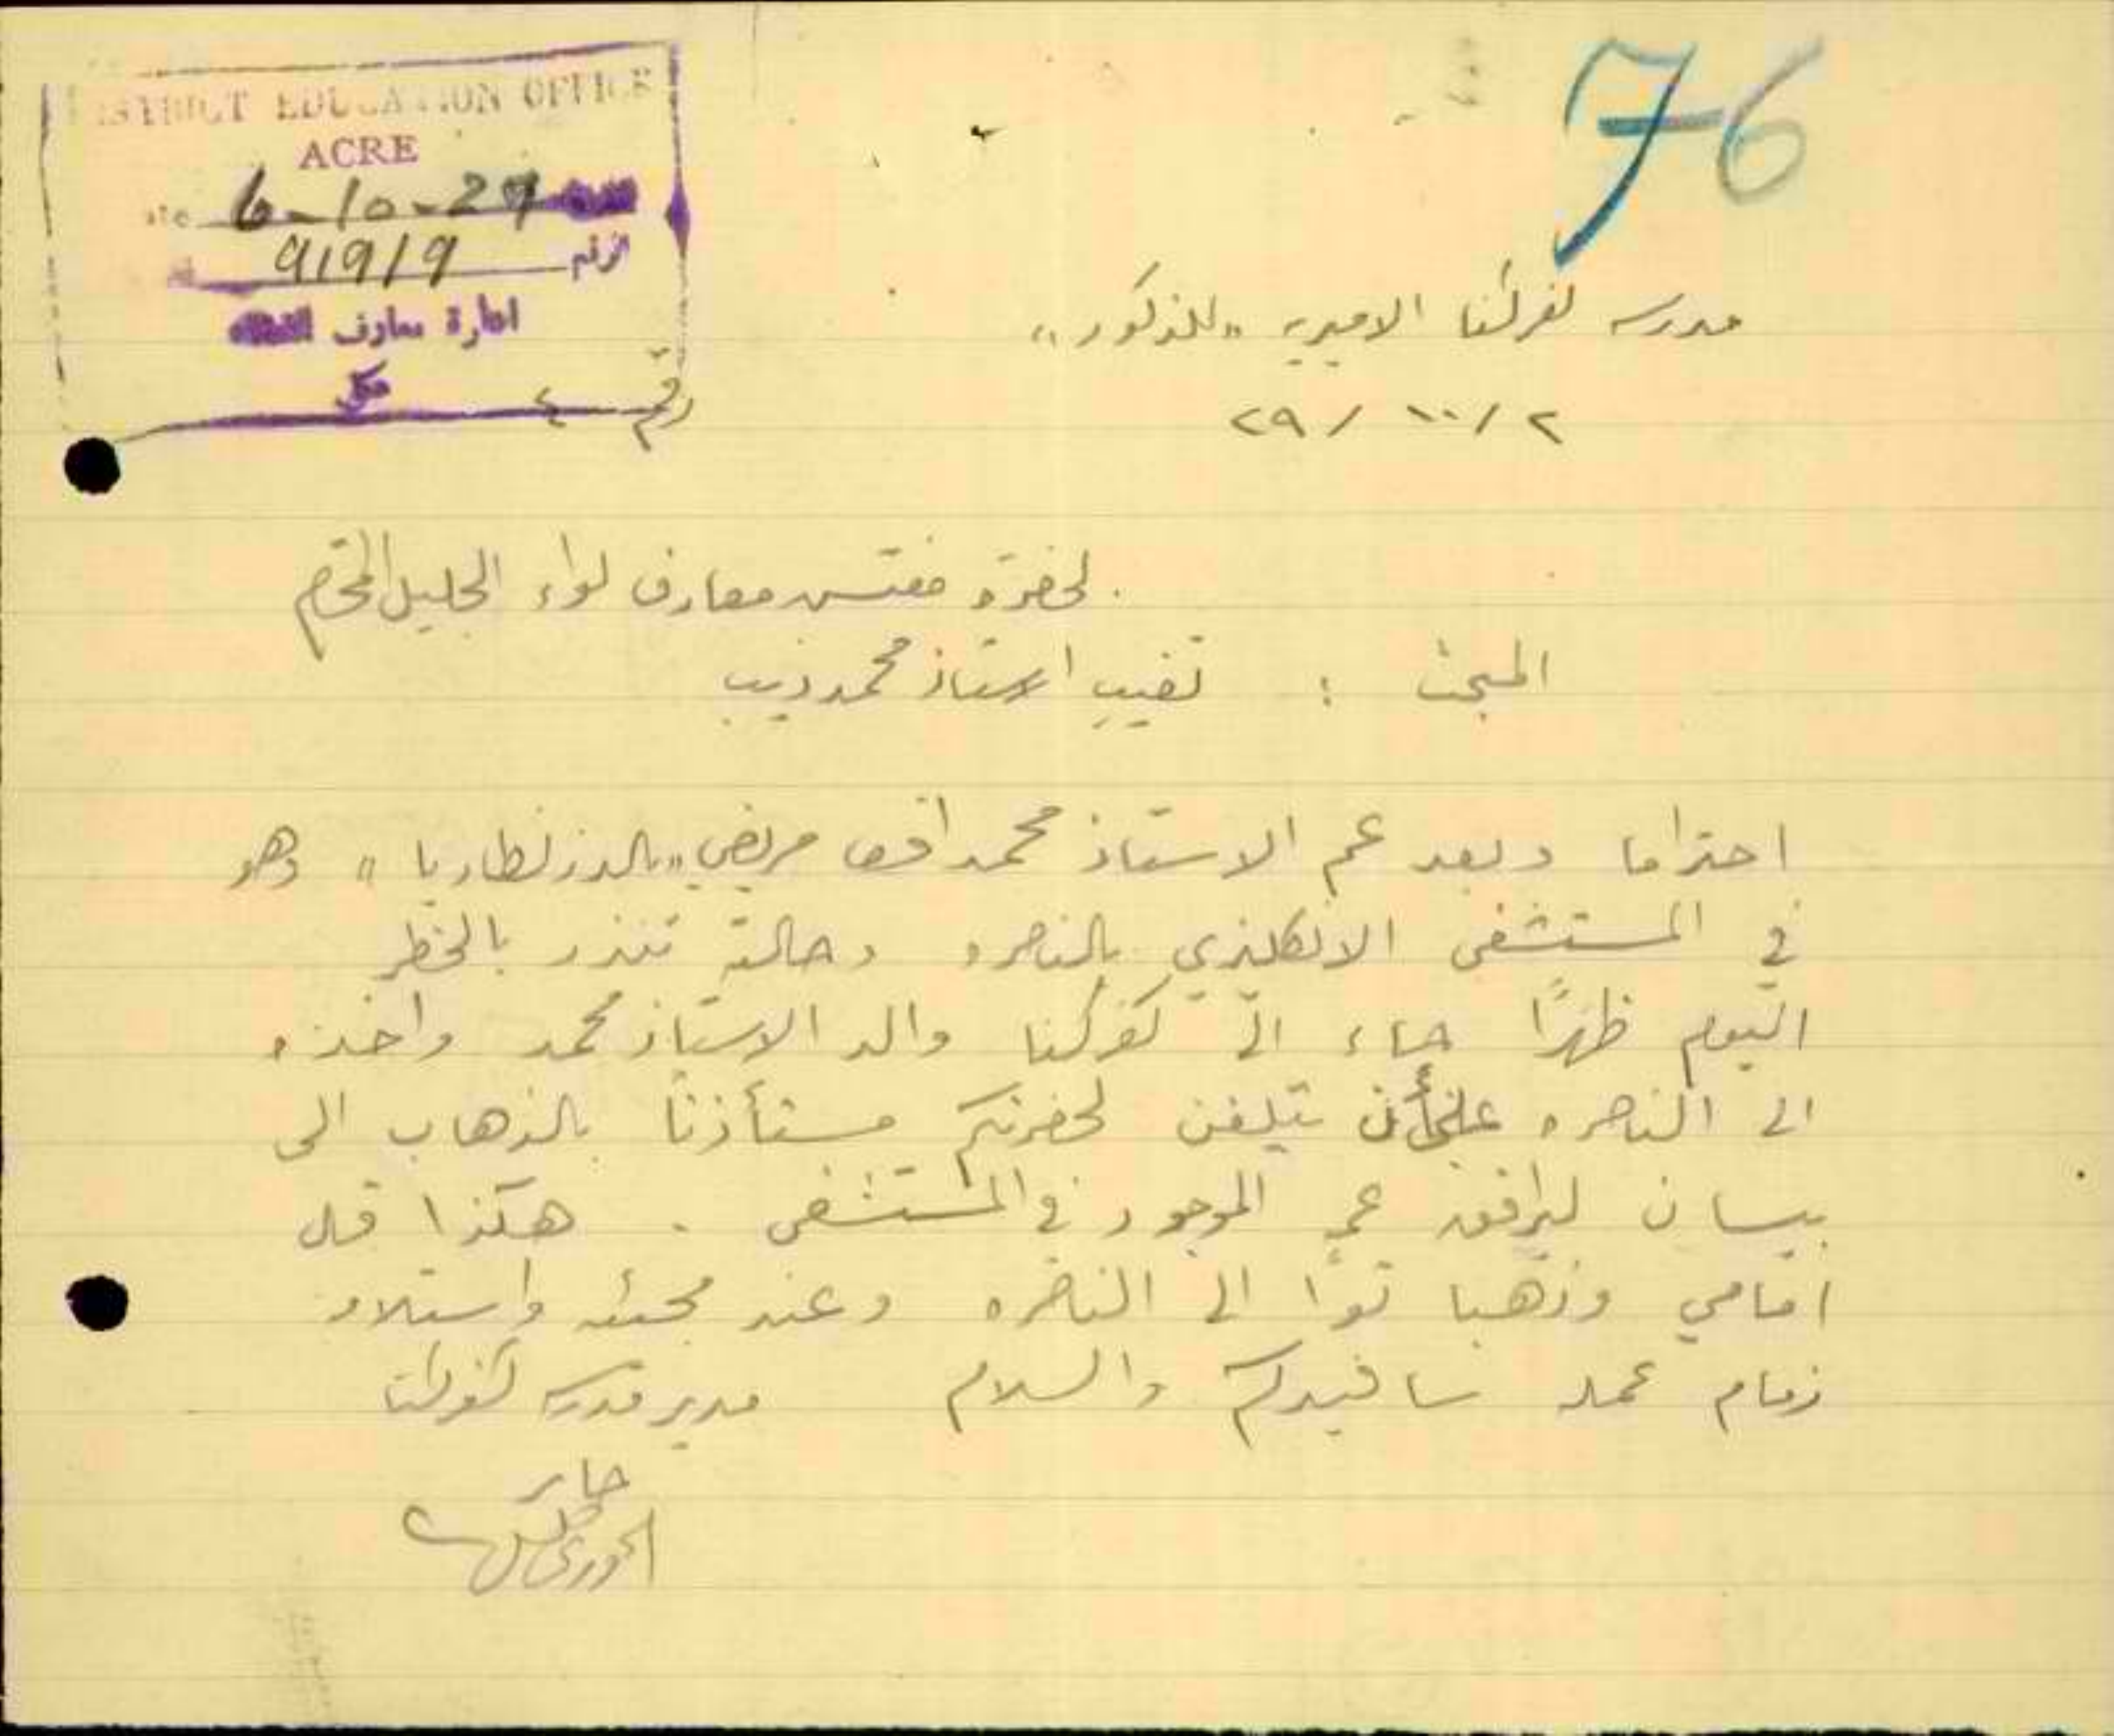 76
DISTRICT EDUCATION OFFICE
ACRE
6-10-29
919/9 الرقم
ادارة معارف
عكا
مدرسه كفركنا الاميريه "للذكور"
٢ / ١٠ / ٢٩
رقم ٤
لحضرة مفتش معارف لواء الجليل المحترم
المبحث : تغيب الاستاذ محمد ذيب
احتراما وبعد عم الاستاذ محمد افندي مريض "بالدزنطاريا" وهو
في المستشفى الانكليزي بالناصره وحالته تنذر بالخطر
اليوم ظهرًا جاء الى كفركنا والد الاستاذ محمد واخذه
الى الناصره على أن يتلفن لحضرتكم مستأذنًا بالذهاب الى
بيسان ليرافق عمه الموجود في المستشفى . هكذا قال
امامي وذهبا توًا الى الناصره وعند مجيئه واستلام
زمام عمله سافيدكم والسلام مدير مدرسة كفركنا
جابر
الخوري